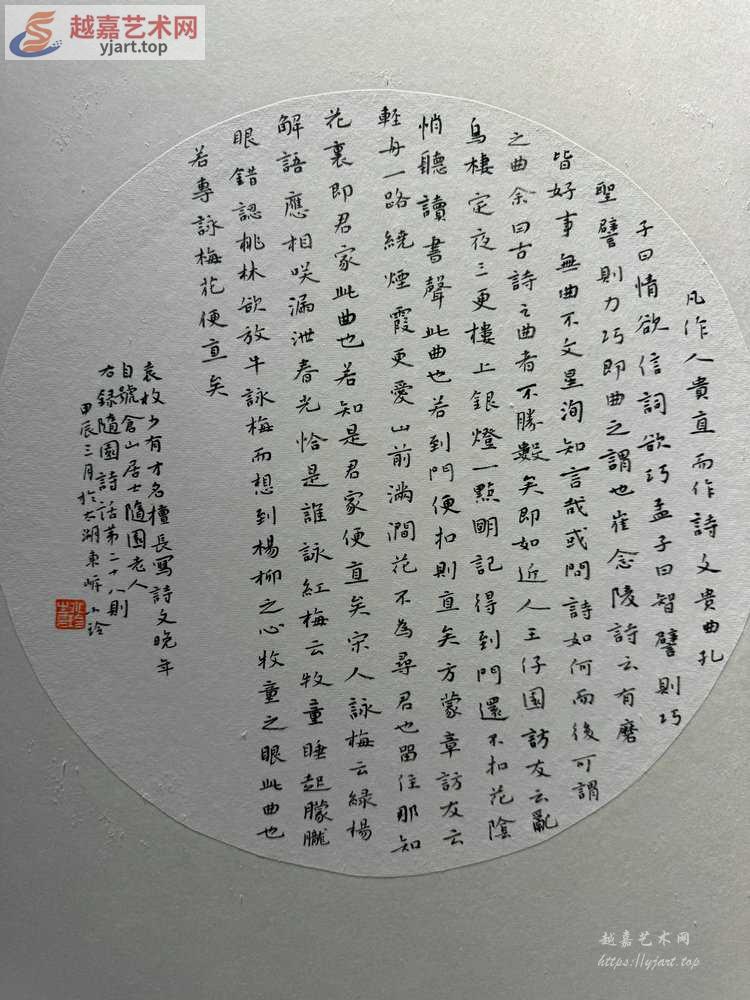 越嘉艺术网
yjart.top
凡作人貴直而作詩文貴曲孔
子曰情欲信詞欲巧孟子曰智譬則巧
聖譬則力巧即曲之謂也崔念陵詩云有磨
皆好事無曲不文星洵知言哉或問詩如何而後可謂
之曲余曰古詩之曲者不勝數矣即如近人王仔園訪友云亂
烏棲定夜三更樓上銀燈一點明記得到門還不扣花陰
悄聽讀書聲此曲也若到門便扣則直矣方蒙章訪友云
輕舟一路繞煙霞更愛山前滿澗花不為尋君也留住那知
花裏即君家此曲也若知是君家便直矣宋人詠梅云綠楊
解語應相咲漏泄春光恰是誰詠紅梅云牧童睡起朦朧
眼錯認桃林欲放牛詠梅而想到楊柳之心牧童之眼此曲也
若專詠梅花便直矣
袁枚少有才名擅長寫詩文晚年
自號倉山居士隨園老人
右録隨園詩話第二十八則
甲辰三月於太湖東岍
越嘉艺术网
https://yjart.top